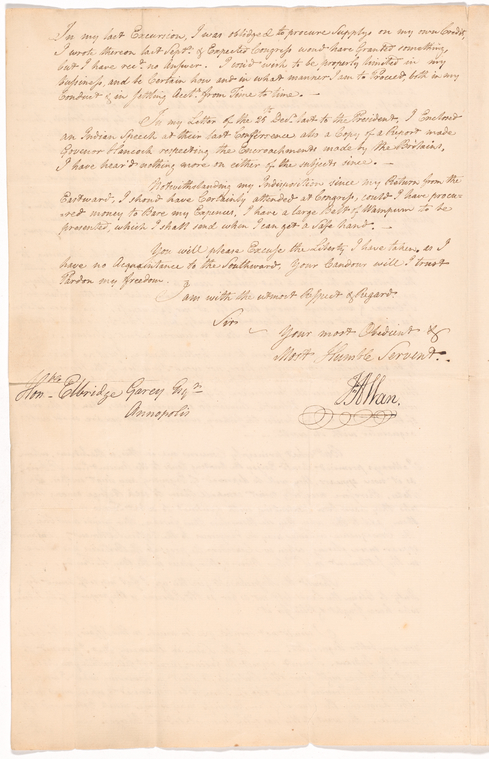 In my last Excursion, I was obliged to procure Supplys on my own Credit,
I wrote thereon last Septr. & Expected Congress woud have Granted something
but I have recd. no Answer. I woud wish to be properly limited in my
Bussiness, and be Certain how and in what manner I am to Proceed, both in my
Conduct & in settling Acctts. from Time to time. —
In my Letter of the 25th Decr. last to the President, I Enclosed
an Indian Speech at their last Conference also a Copy of a Report made
Govenor Hancock respecting the Encroachments made by the Britains,
I have heard nothing more on either of the subjects since. —
Notwithstanding my Indisposition since my Return from the
Eastward, I shoud have Certainly attended at Congress, could I have procu-
red money to Bare my Expences, I have a large Belt of Wampum to be
presented, which I shall send when I can get a Safe hand. —
You will please Excuse the Liberty I have taken, as I
have no Acquaintance to the Southward. Your Candour will I trust
Pardon my freedom.
I am with the utmost Respect & Regard.
Sir
Your most Obedient &
Most Humble Servent.
Honble. Elbridge Garey Esqr.
Annopolis
JAllan.